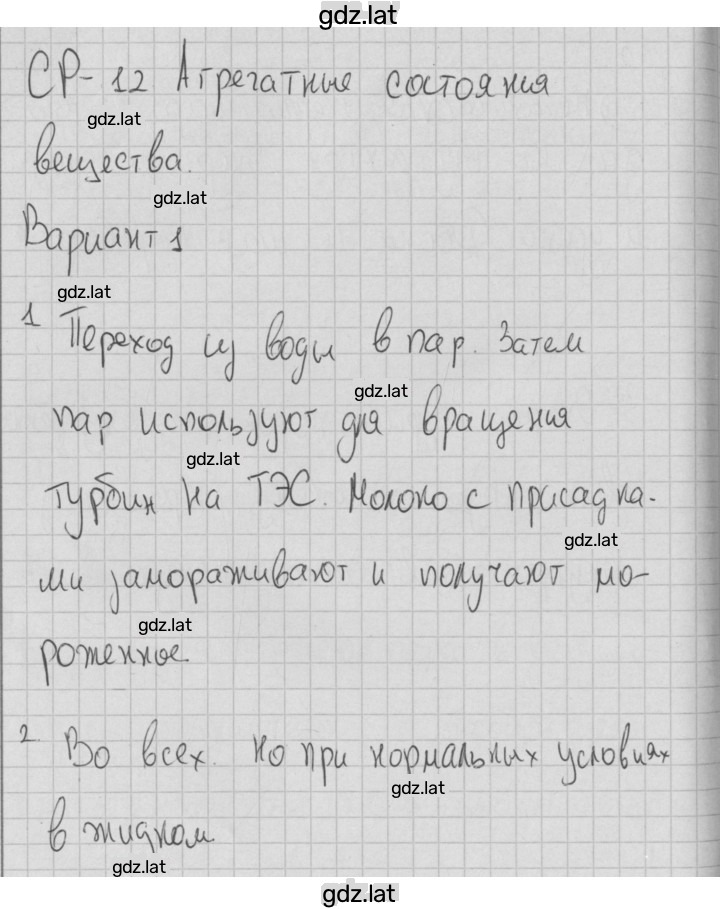 gdz.lat
СР-12 Агрегатные состояния
gdz.lat
вещества.
gdz.lat
Вариант 1
gdz.lat
1 Переход из воды в пар. Затем
gdz.lat
пар используют для вращения
gdz.lat
турбин на ТЭС. Молоко с присадка-
gdz.lat
ми замораживают и получают мо-
gdz.lat
роженное
2. Во всех. Но при нормальных условиях
gdz.lat
в жидком
gdz.lat
gdz.lat